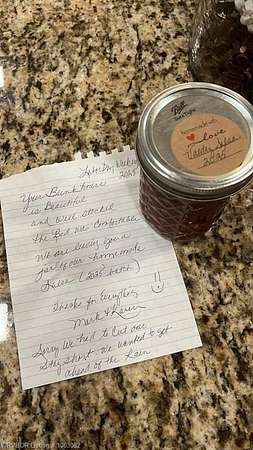 Labor Day Weekend
2025
Your Bunk house
is Beautiful
and well stocked
the Bed was Comfortable
We are leaving you a
Jar of our homemade
(2025 batch)
Thanks for Everything
Mark &
Sorry We had to Cut our
Stay Short we wanted to get
ahead of the Rain
Ball
homemade with
love
2025